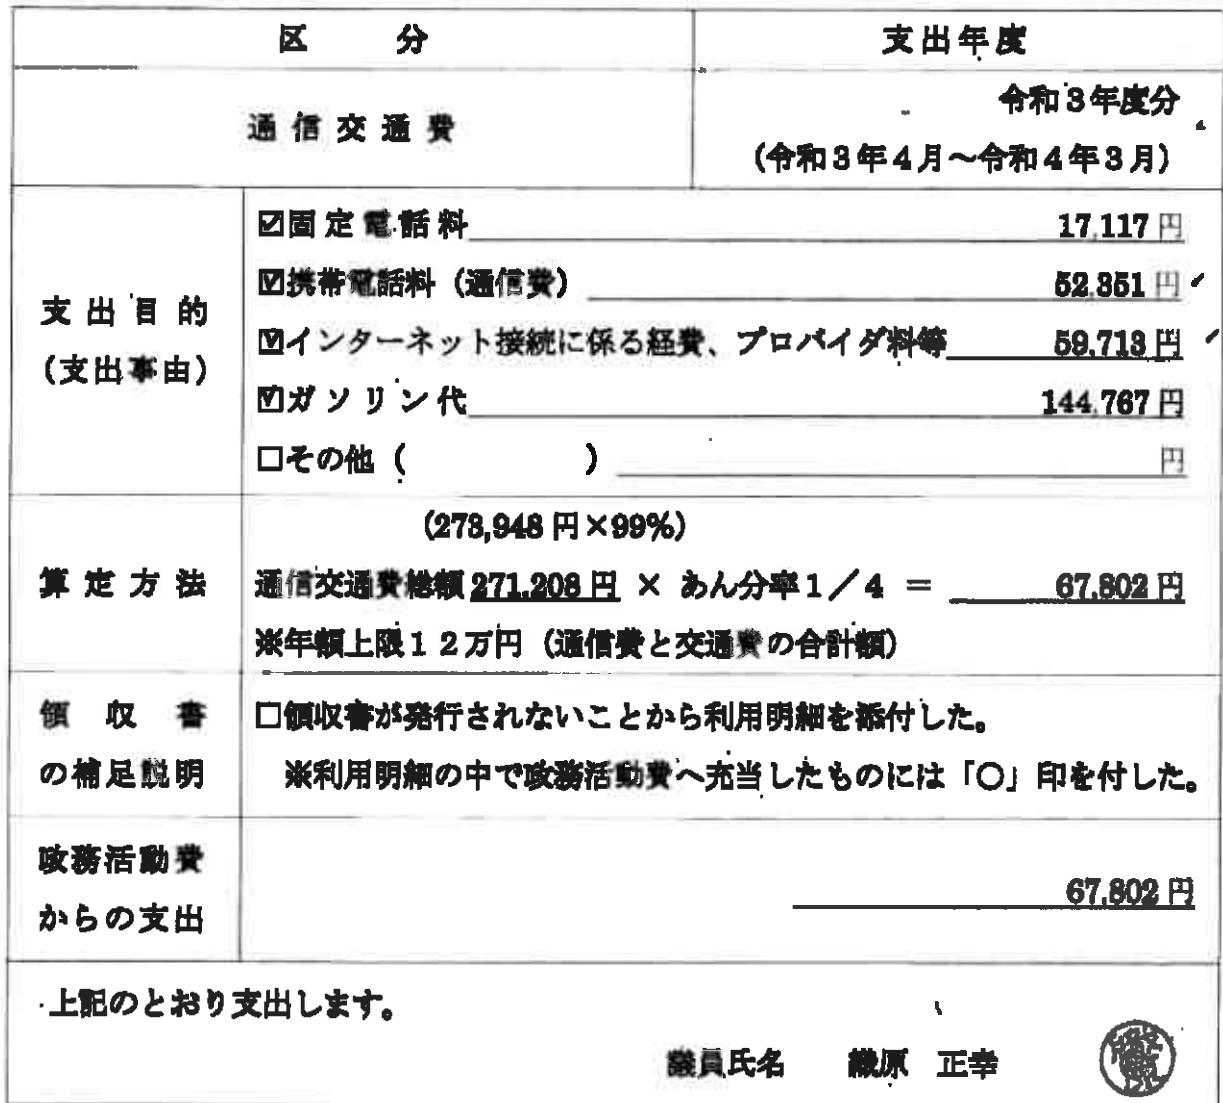 区　分　支出年度
通信交通費
令和3年度分
(令和3年4月～令和4年3月)
支出目的
(支出事由)
☑固定電話料 17,117円
☑携帯電話料（通信費） 52,351円
☑インターネット接続に係る経費、プロバイダ料等 59,713円
☑ガソリン代 144,767円
□その他（　　　） 円
算定方法
(273,948円×99%)
通信交通費総額 271,208円 × あん分率1／4 ＝ 67,802円
※年額上限12万円（通信費と交通費の合計額）
領収書
の補足説明
□領収書が発行されないことから利用明細を添付した。
※利用明細の中で政務活動費へ充当したものには「○」印を付した。
政務活動費
からの支出
67,802円
上記のとおり支出します。
議員氏名　織原　正幸